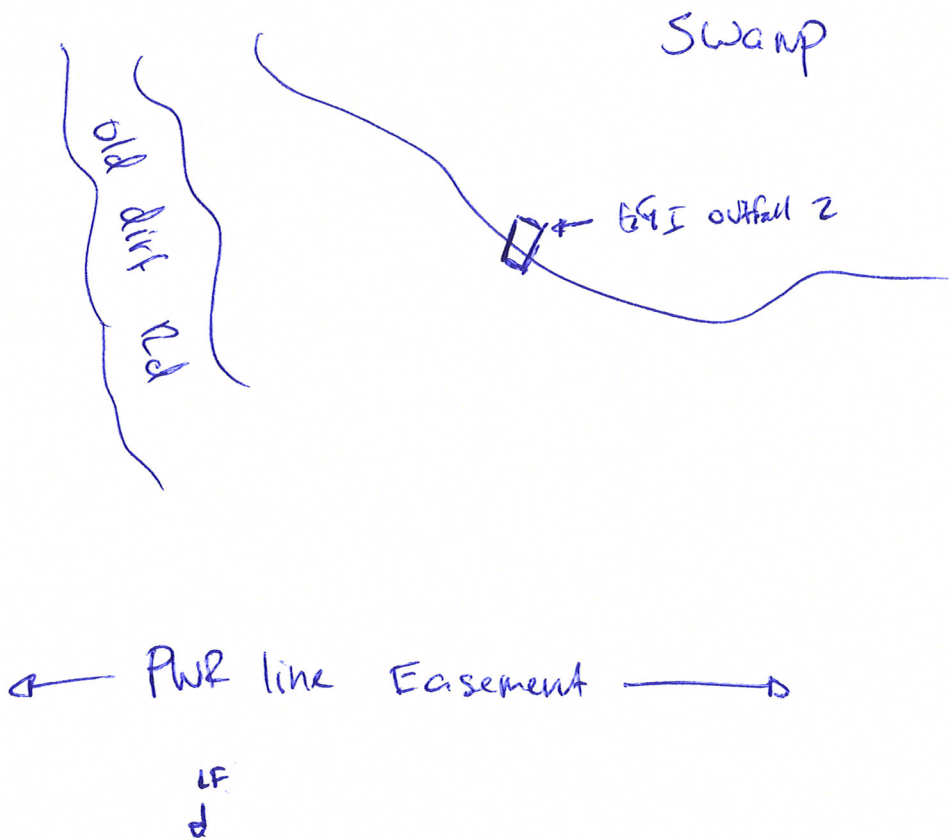 Swamp
old dirt Rd
outfall 2
PWR line Easement
LF